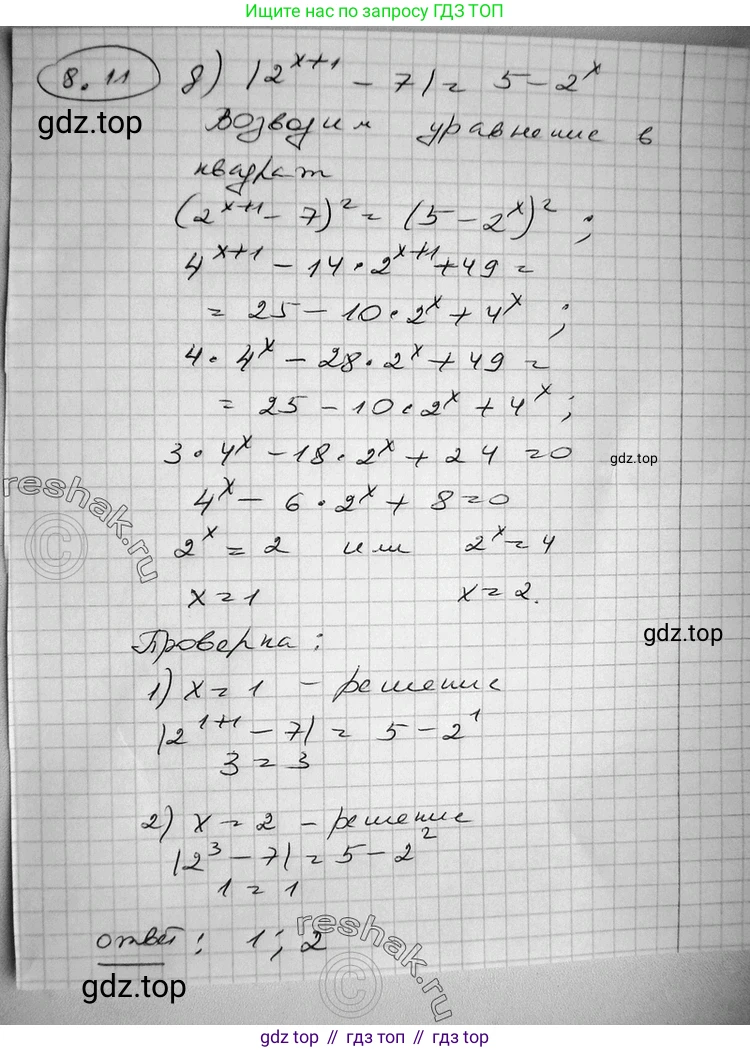 Ищите нас по запросу ГДЗ ТОП
8.11 д) |2^(x+1) - 7| = 5 - 2^x
gdz.top
Возводим уравнение в
квадрат
(2^(x+1) - 7)^2 = (5 - 2^x)^2;
4^(x+1) - 14·2^(x+1) + 49 =
= 25 - 10·2^x + 4^x;
4·4^x - 28·2^x + 49 =
= 25 - 10·2^x + 4^x;
3·4^x - 18·2^x + 24 = 0
gdz.top
reshak.ru
4^x - 6·2^x + 8 = 0
2^x = 2 или 2^x = 4
x = 1 x = 2.
gdz.top
Проверка:
1) x = 1 - решение
|2^(1+1) - 7| = 5 - 2^1
3 = 3
2) x = 2 - решение
|2^3 - 7| = 5 - 2^2
1 = 1
ответ: 1; 2
reshak.ru
gdz.top
gdz.top // гдз топ // gdz.top